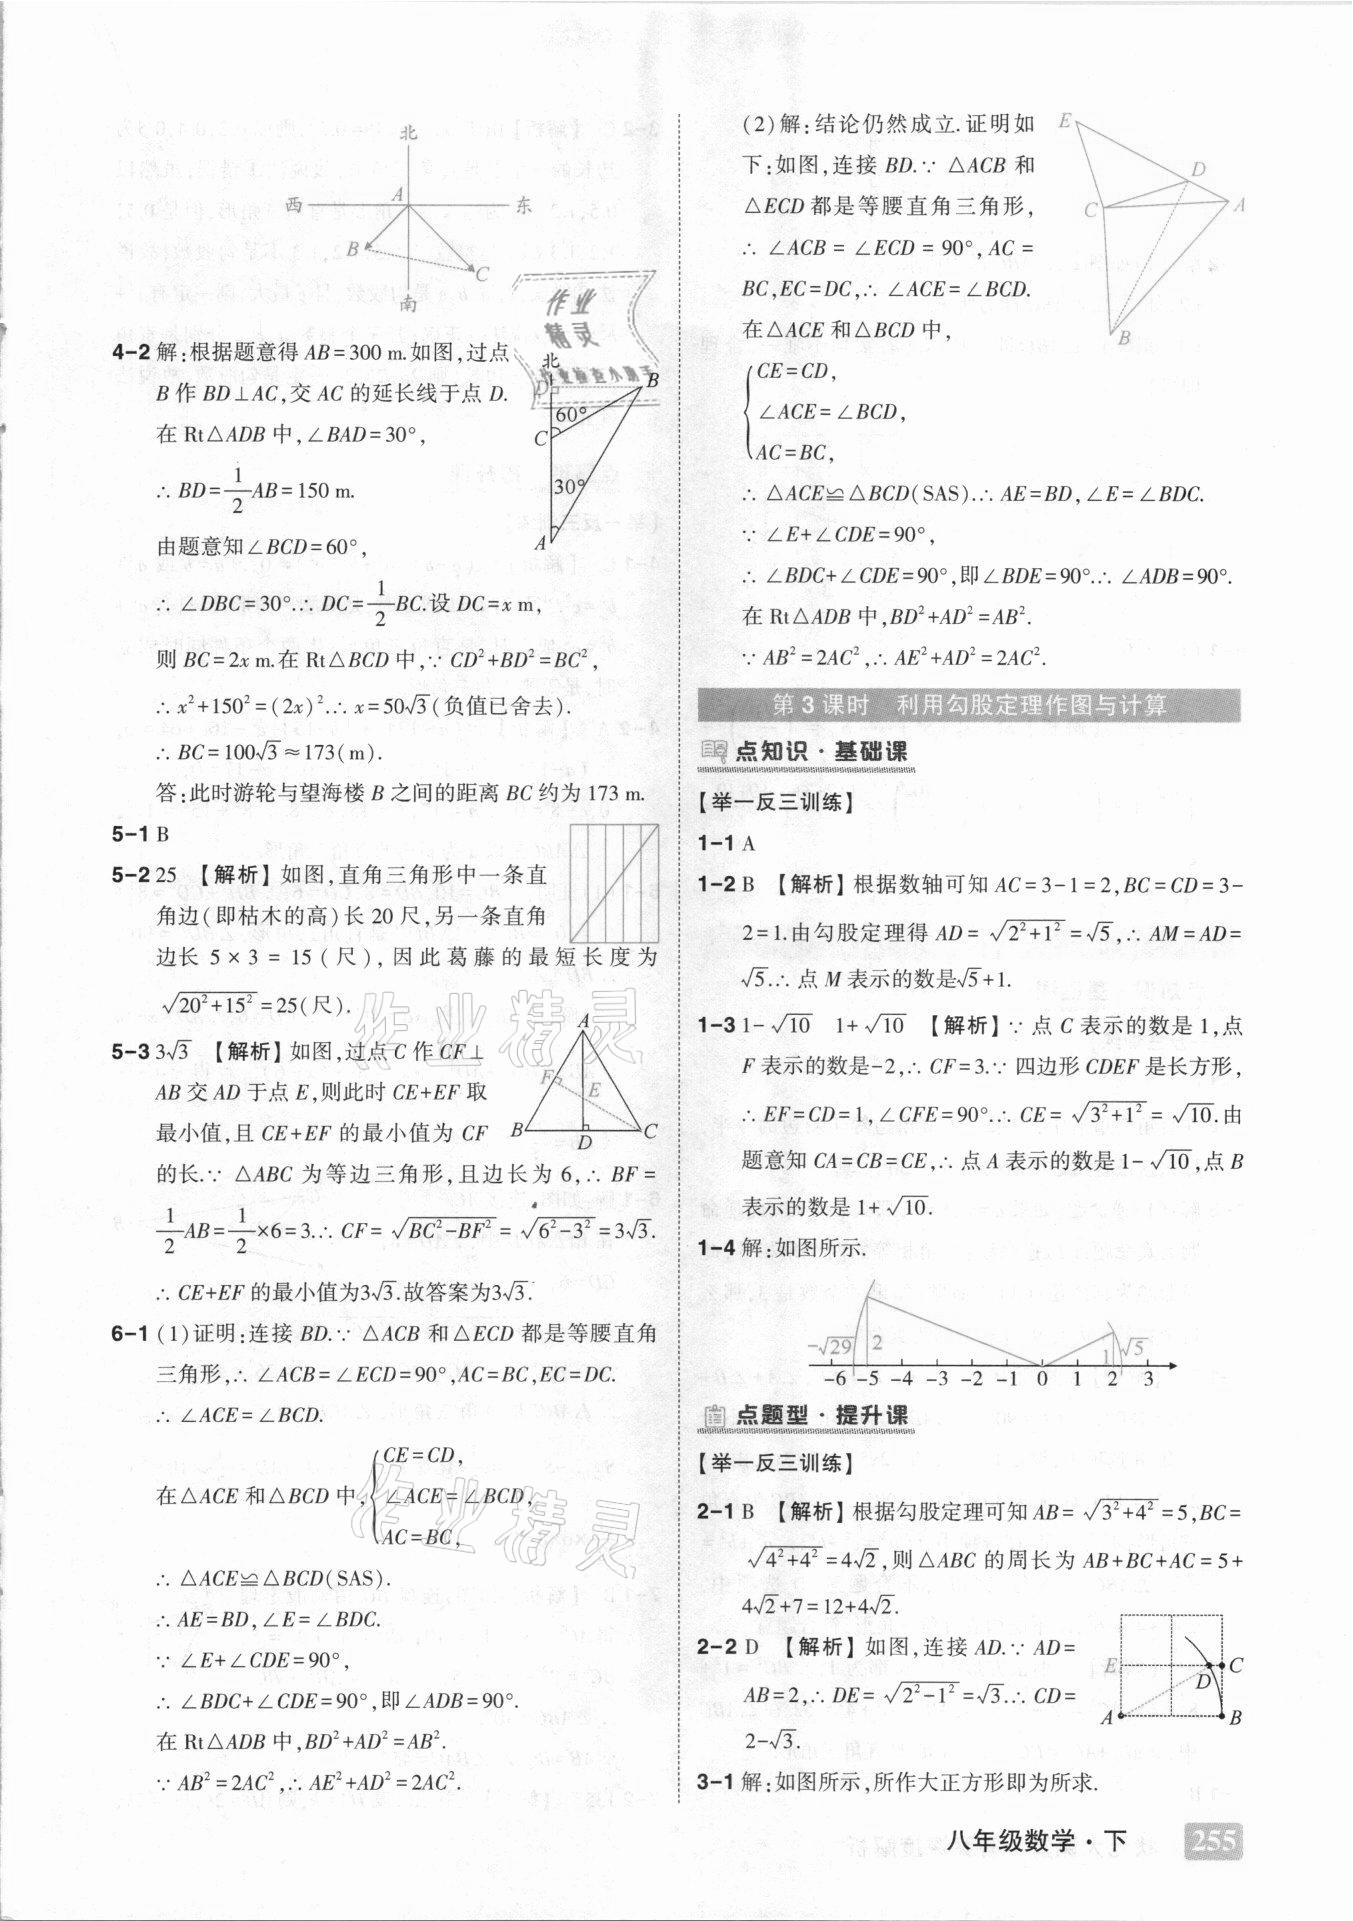 北
西 A 东
B
C
南
4-2 解:根据题意得 AB=300 m.如图,过点
B 作 BD⊥AC,交 AC 的延长线于点 D.
在 Rt△ADB 中,∠BAD=30°,
∴ BD=1/2AB=150 m.
由题意知∠BCD=60°,
∴ ∠DBC=30°.∴ DC=1/2BC.设 DC=x m,
则 BC=2x m.在 Rt△BCD 中,∵ CD²+BD²=BC²,
∴ x²+150²=(2x)².∴ x=50√3(负值已舍去).
∴ BC=100√3≈173(m).
答:此时游轮与望海楼 B 之间的距离 BC 约为 173 m.
作业
精灵
作业检查小助手
北
D B
60°
C
30°
A
5-1 B
5-2 25 【解析】如图,直角三角形中一条直
角边(即枯木的高)长 20 尺,另一条直角
边长 5×3=15(尺),因此葛藤的最短长度为
√(20²+15²)=25(尺).
5-3 3√3 【解析】如图,过点 C 作 CF⊥
AB 交 AD 于点 E,则此时 CE+EF 取
最小值,且 CE+EF 的最小值为 CF
的长.∵ △ABC 为等边三角形,且边长为 6,∴ BF=
1/2AB=1/2×6=3.∴ CF=√(BC²-BF²)=√(6²-3²)=3√3.
∴ CE+EF 的最小值为3√3.故答案为3√3.
A
F
E
B D C
作业精灵
6-1 (1)证明:连接 BD.∵ △ACB 和△ECD 都是等腰直角
三角形,∴ ∠ACB=∠ECD=90°,AC=BC,EC=DC.
∴ ∠ACE=∠BCD.
在△ACE 和△BCD 中,{CE=CD,
∠ACE=∠BCD,
AC=BC,
∴ △ACE≌△BCD(SAS).
∴ AE=BD,∠E=∠BDC.
∵ ∠E+∠CDE=90°,
∴ ∠BDC+∠CDE=90°,即∠ADB=90°.
在 Rt△ADB 中,BD²+AD²=AB².
∵ AB²=2AC²,∴ AE²+AD²=2AC².
作业精灵
(2)解:结论仍然成立.证明如
下:如图,连接 BD.∵ △ACB 和
△ECD 都是等腰直角三角形,
∴ ∠ACB=∠ECD=90°,AC=
BC,EC=DC,∴ ∠ACE=∠BCD.
在△ACE 和△BCD 中,
{CE=CD,
∠ACE=∠BCD,
AC=BC,
∴ △ACE≌△BCD(SAS).∴ AE=BD,∠E=∠BDC.
∵ ∠E+∠CDE=90°,
∴ ∠BDC+∠CDE=90°,即∠BDE=90°.∴ ∠ADB=90°.
在 Rt△ADB 中,BD²+AD²=AB².
∵ AB²=2AC²,∴ AE²+AD²=2AC².
E
D
C A
B
第 3 课时 利用勾股定理作图与计算
点知识·基础课
【举一反三训练】
1-1 A
1-2 B 【解析】根据数轴可知 AC=3-1=2,BC=CD=3-
2=1.由勾股定理得 AD=√(2²+1²)=√5,∴ AM=AD=
√5.∴ 点 M 表示的数是√5+1.
1-3 1-√10 1+√10 【解析】∵ 点 C 表示的数是 1,点
F 表示的数是-2,∴ CF=3.∵ 四边形 CDEF 是长方形,
∴ EF=CD=1,∠CFE=90°.∴ CE=√(3²+1²)=√10.由
题意知 CA=CB=CE,∴ 点 A 表示的数是 1-√10,点 B
表示的数是 1+√10.
1-4 解:如图所示.
-√29 2 1 √5
-6 -5 -4 -3 -2 -1 0 1 2 3
点题型·提升课
【举一反三训练】
2-1 B 【解析】根据勾股定理可知 AB=√(3²+4²)=5,BC=
√(4²+4²)=4√2,则△ABC 的周长为 AB+BC+AC=5+
4√2+7=12+4√2.
2-2 D 【解析】如图,连接 AD.∵ AD=
AB=2,∴ DE=√(2²-1²)=√3.∴ CD=
2-√3.
E C
D
A B
3-1 解:如图所示,所作大正方形即为所求.
八年级数学·下 255